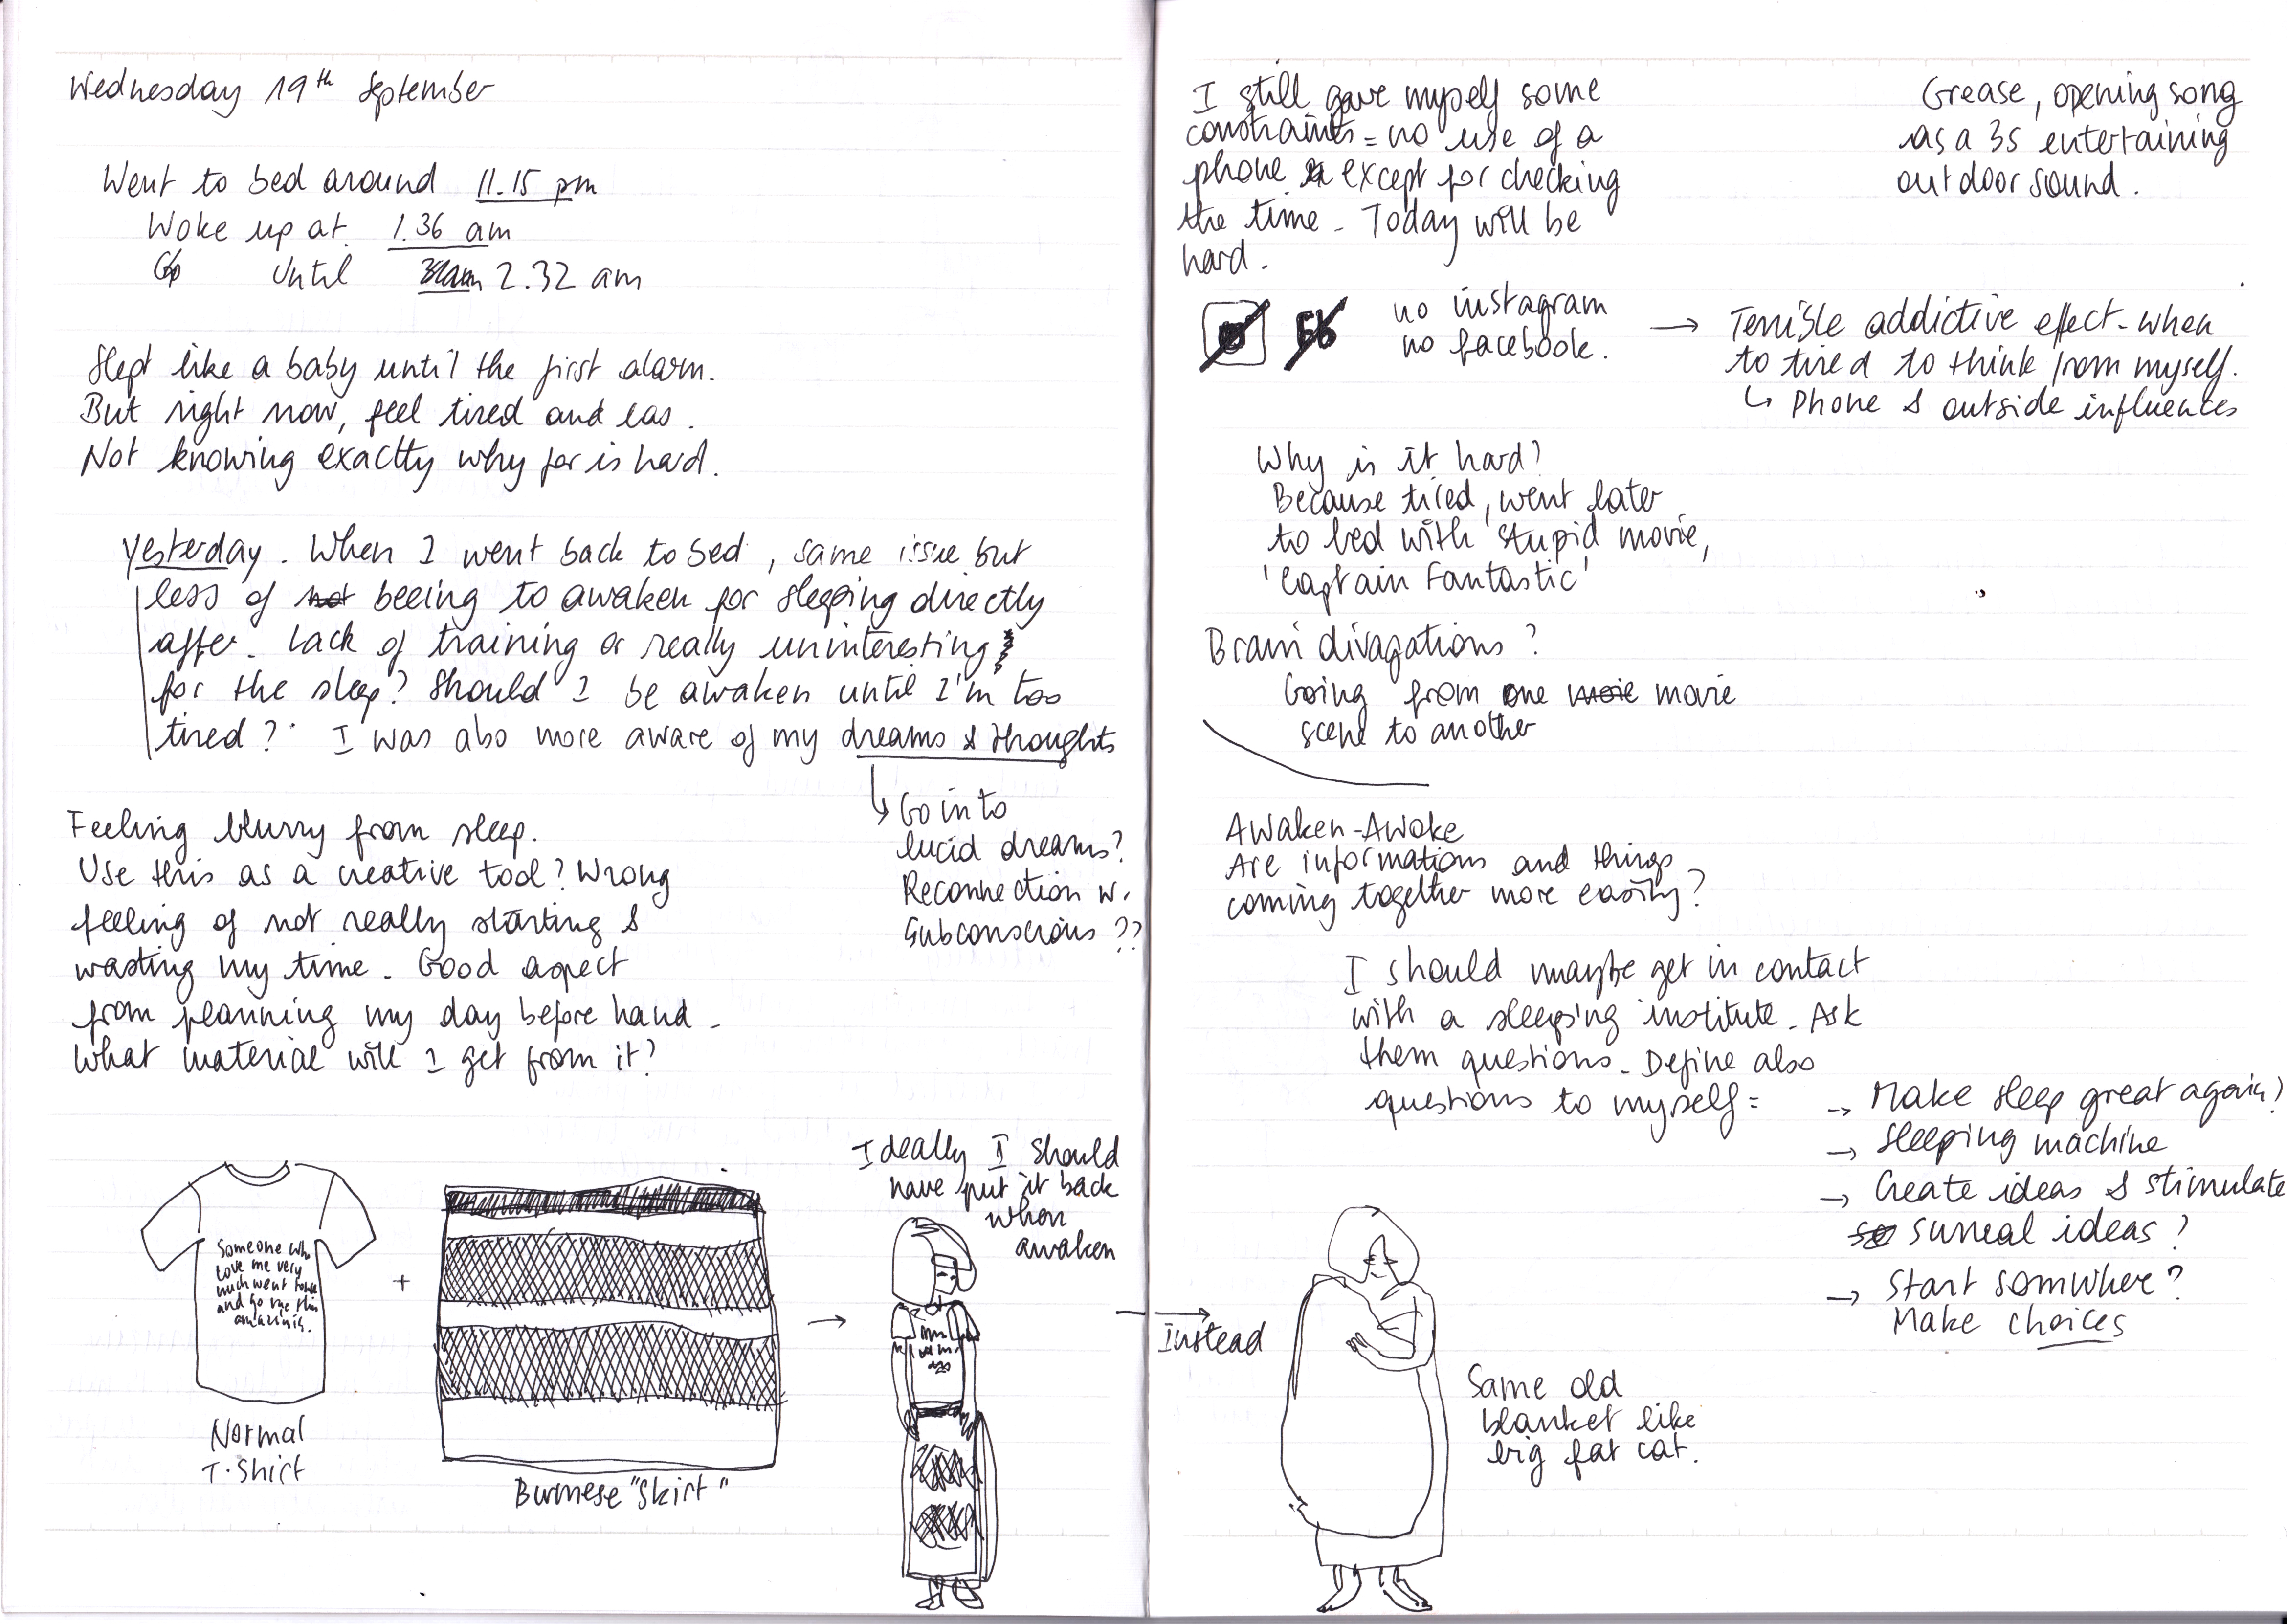 Wednesday 19th September
Went to bed around 11.15 pm
Woke up at 1.36 am
Until 2.32 am
Slept like a baby until the first alarm.
But right now, feel tired and eas.
Not knowing exactly why for is hard.
Yesterday. When I went back to bed, same issue but
less of not beeing to awaken for sleeping directly
after. Lack of training or really uninteresting
for the sleep? Should I be awaken until I'm too
tired? I was also more aware of my dreams & thoughts
↳ Go into
lucid dreams?
Reconnection w.
Subconscious ??
Feeling blurry from sleep.
Use this as a creative tool? Wrong
feeling of not really starting &
wasting my time. Good aspect
from planning my day before hand.
What material will I get from it?
Someone who
love me very
much went
and go me this
amazing.
Normal
T-Shirt
+
Burmese "Skirt"
→
Ideally I should
have put it back
when
awaken
→
Instead
Same old
blanket like
big fat cat.
I still gave myself some
constraints = no use of a
phone except for checking
the time. Today will be
hard.
Grease, opening song
as a 3s entertaining
outdoor sound.
Fb
no instagram
no facebook.
→ Terrible addictive effect when
to tired to think from myself.
↳ Phone & outside influences
Why is it hard?
Because tired, went later
to bed with stupid movie,
'Captain Fantastic'
Brain divagations?
Going from one movie
scene to another
Awaken-Awoke
Are informations and things
coming together more easily?
I should maybe get in contact
with a sleeping institute. Ask
them questions. Define also
questions to myself =
→ Make sleep great again?
→ Sleeping machine
→ Create ideas & stimulate
surreal ideas?
→ Start somwhere?
Make choices